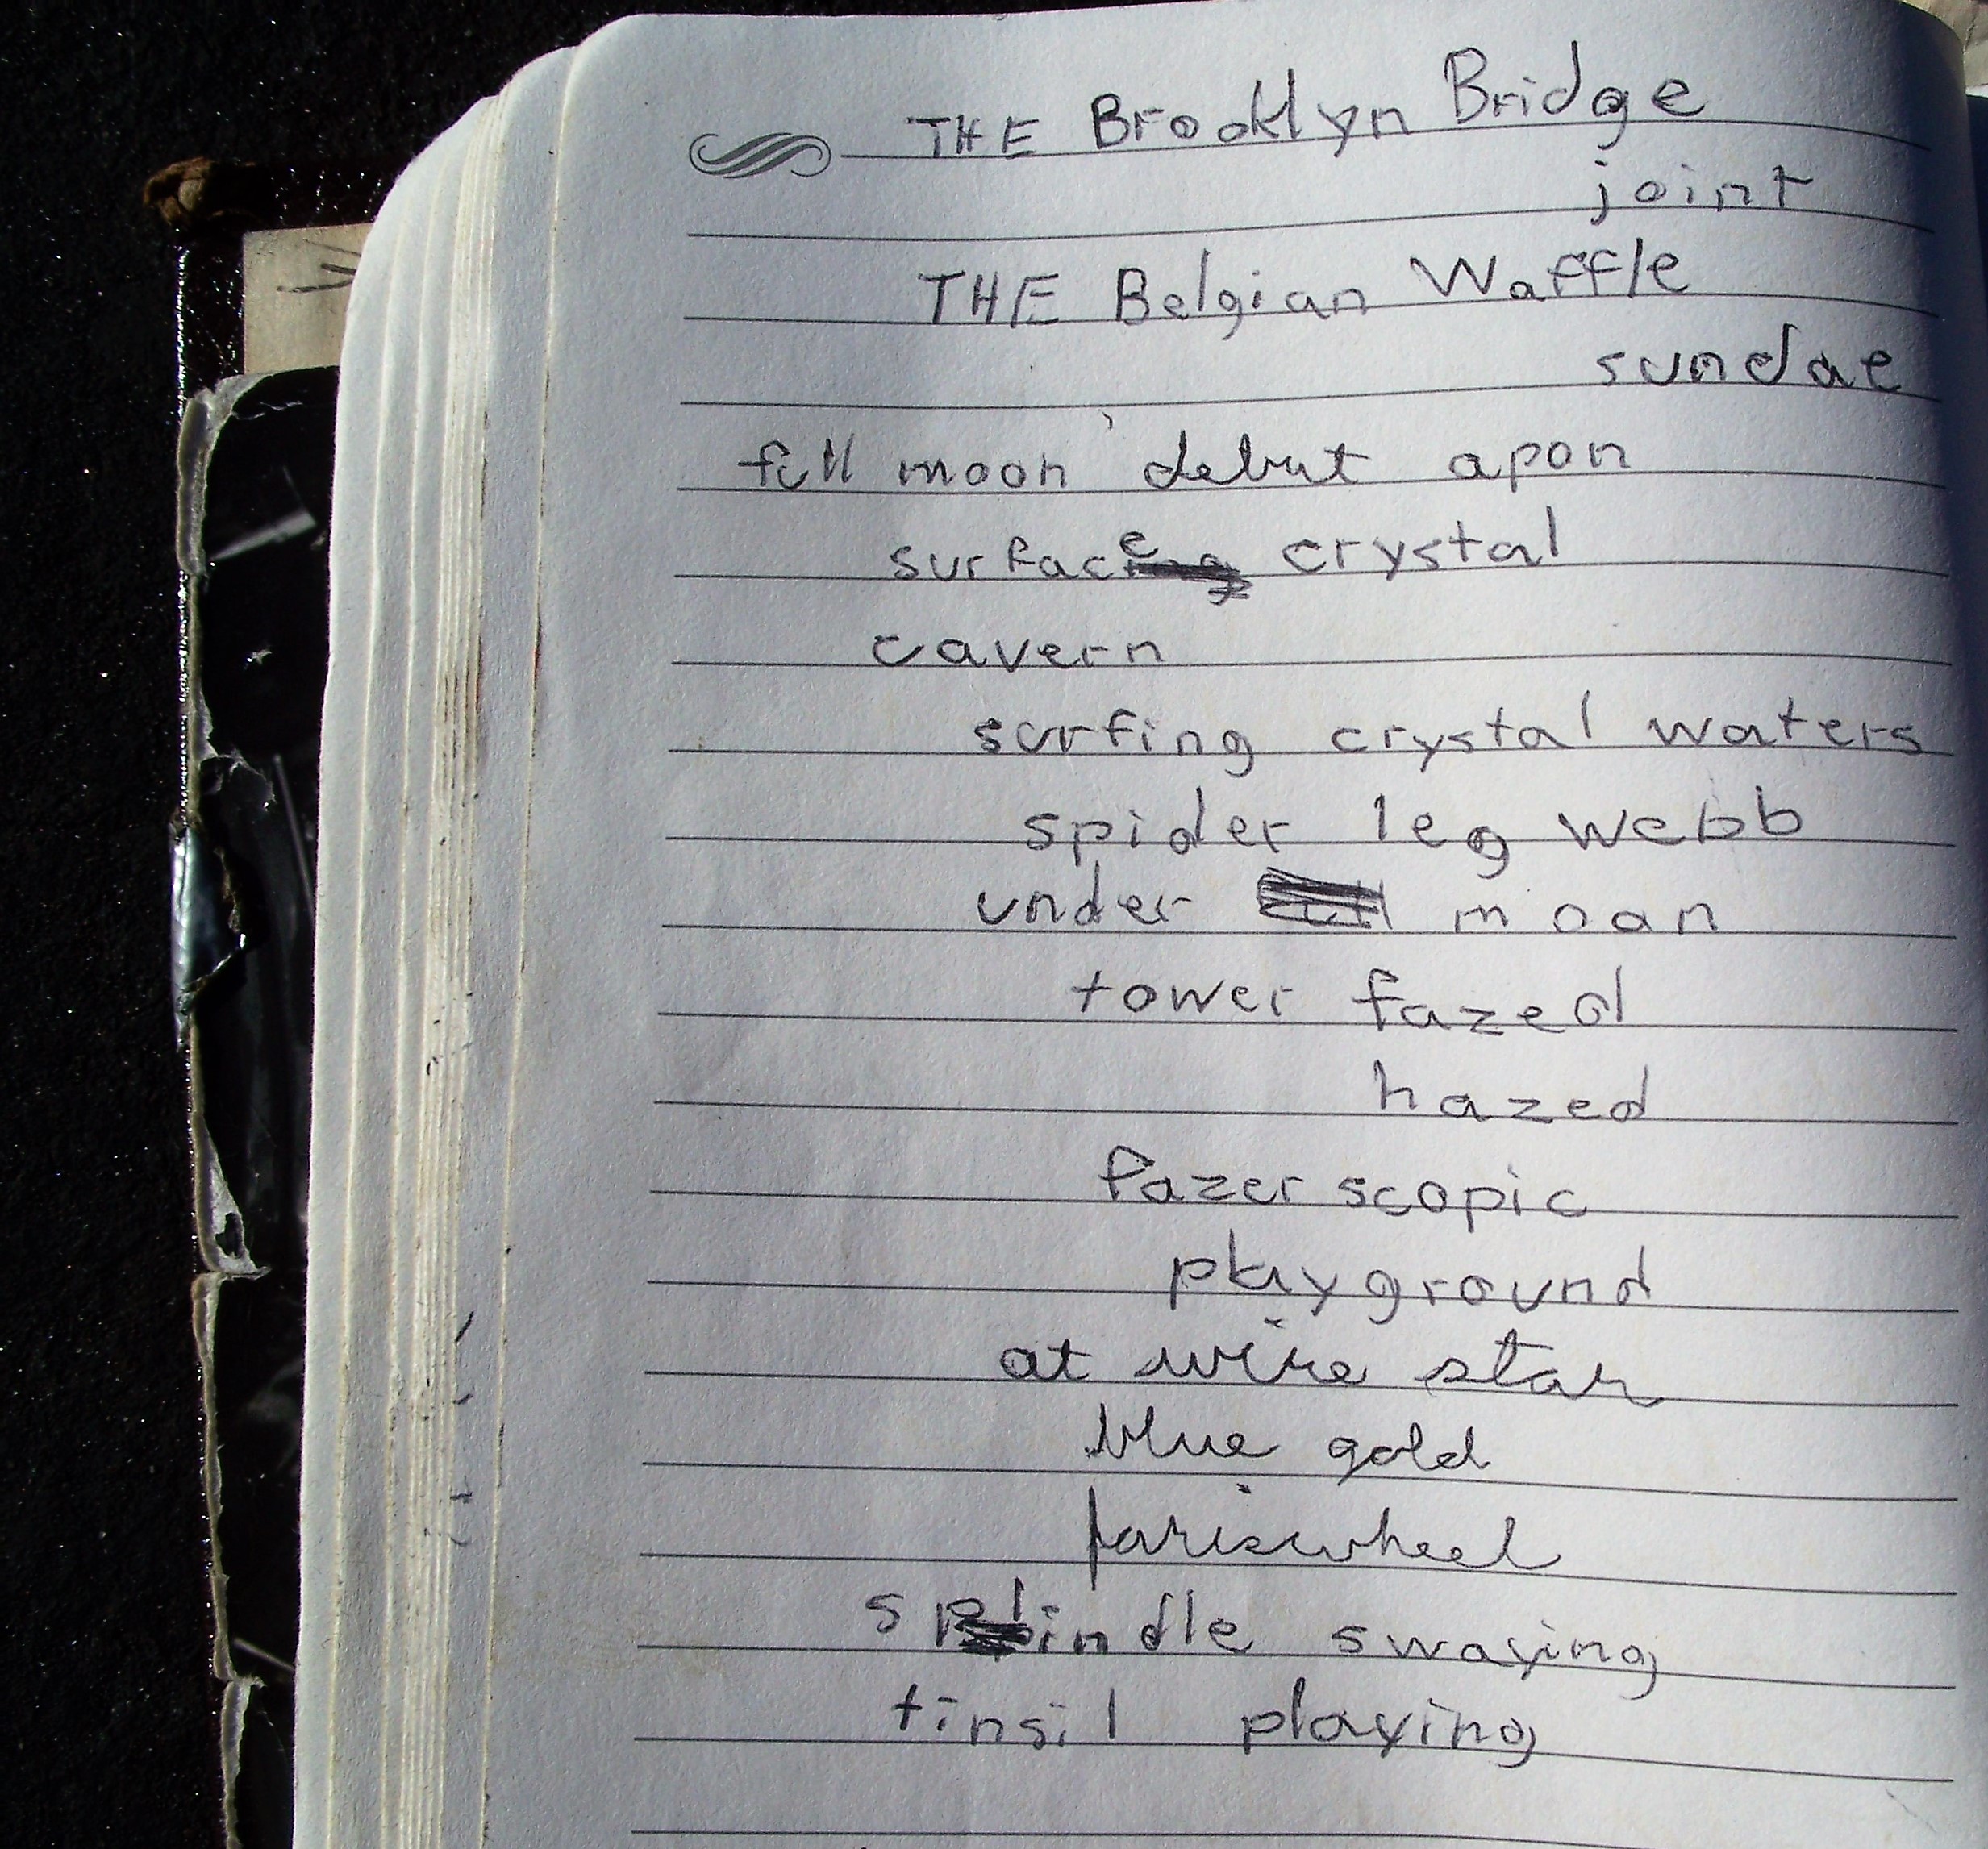 THE Brooklyn Bridge
joint
THE Belgian Waffle
sundae
full moon debut apon
surface crystal
cavern
surfing crystal waters
spider leg webb
under moan
tower fazed
hazed
fazer scopic
playground
at wire star
blue gold
fariswheel
spindle swaying
tinsil playing